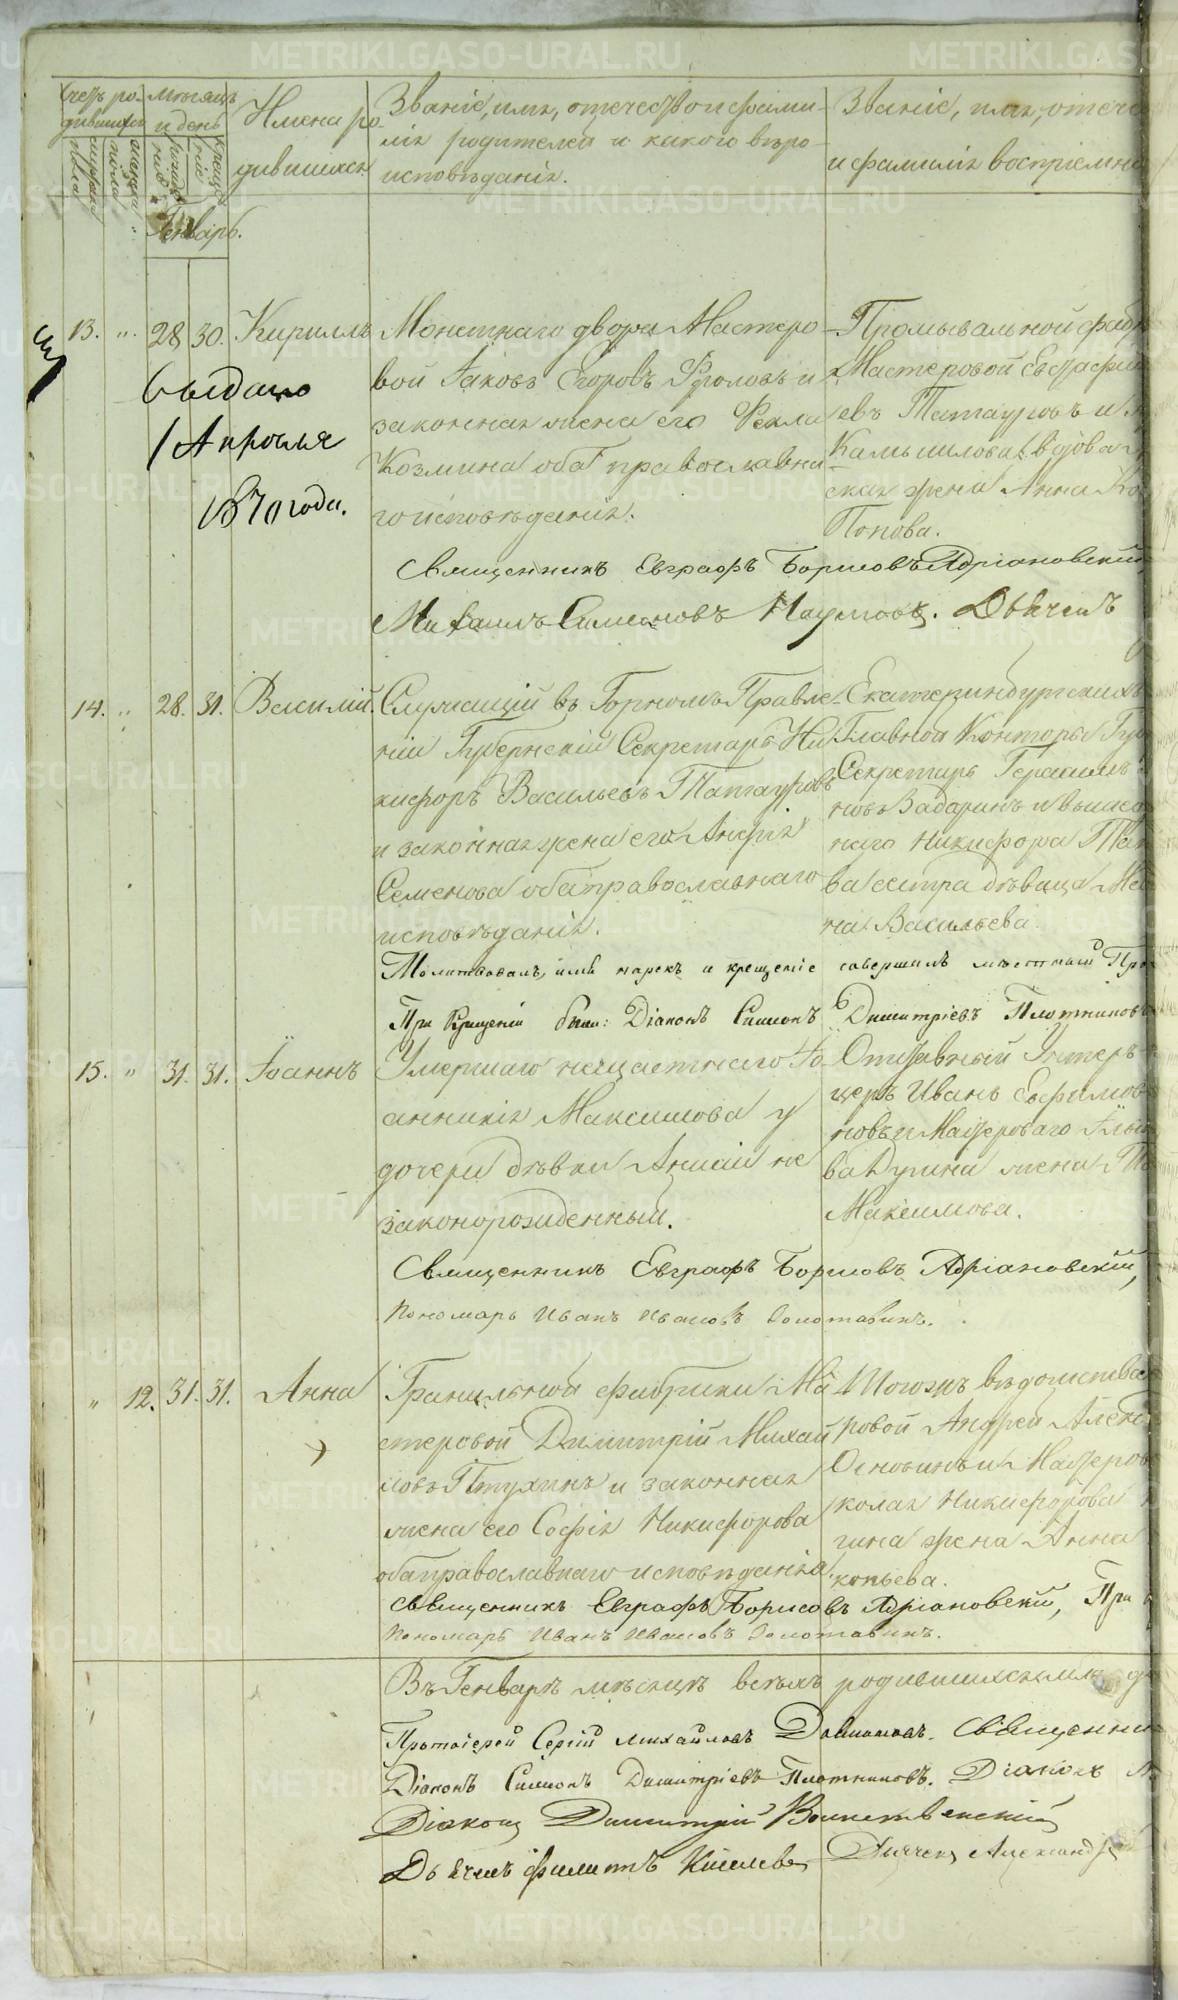 Счетъ ро-
дившихся
мужеска
пола
женска
пола
мѣсяцъ
и день
рожде-
нія
креще-
нія
Имена ро-
дившихся
Званіе, имя, отечество и фами-
лія родителей и какого вѣро-
исповѣданія.
Званіе, имя, отече
и фамилія воспріемни
Генварь.
13. „ 28 30. Кириллъ
выдано
1 Апрѣля
1870 года.
Монетнаго двора Мастеро-
вой Іаковъ Егоровъ Фроловъ и
законная жена его Фекла
Козмина оба православна-
го исповѣданія.
Промывальной фабр
Мастеровой Евстафій
евъ Татауровъ и
Камышлова вдова
ская жена Анна
Попова.
Священникъ Евграфъ Борисовъ Адріановскій,
Михаилъ Симеоновъ Наумовъ. Дьячекъ
14. „ 28. 31. Василій.
Служащій въ Горномъ Правле-
ніи Губернскій Секретарь Ни-
кифоръ Васильевъ Татауровъ
и законная жена его Анфія
Семенова оба православнаго
исповѣданія.
Екатеринбургскихъ
Главной Конторы Гу
Секретарь Герасимъ
новъ Задаринъ и выше
наго Никифора Та
ва сестра дѣвица Ма
на Васильева.
Молитвовалъ, имя нарекъ и крещеніе совершилъ мѣстный Про
При Крещеніи были: Діаконъ Симеонъ Димитріевъ Плотниковъ
15. „ 31. 31. Іоаннъ
Умершаго нещастнаго Іо-
анникія Максимова у
дочери дѣвки Анисіи не
законорожденный.
Отставный Унтеръ-
церъ Иванъ Евфимов
новъ и Мастероваго
ва Дугина жена
Максимова.
Священникъ Евграфъ Борисовъ Адріановскій,
Пономарь Иванъ Ивановъ Золотавинъ.
„ 12. 31. 31. Анна
Гранильной фабрики Ма-
стеровой Димитрій Михай-
ловъ Птухинъ и законная
жена его Софія Никифорова
оба православнаго исповѣданія.
Того жъ вѣдомства
ровой Андрей Алек
Осиповъ и Мастеров
колая Никифорова
гина жена Анна
копьева.
Священникъ Евграфъ Борисовъ Адріановскій, При
Пономарь Иванъ Ивановъ Золотавинъ.
Въ Генварѣ мѣсяцѣ всѣхъ родившихся
Протоіерей Сергій Михайловъ Священни
Діаконъ Симеонъ Димитріевъ Плотниковъ. Діаконъ
Діаконъ Димитрій Воинственскій
Дьячекъ Филиппъ Киселевъ Дьячекъ Александръ
METRIKI.GASO-URAL.RU